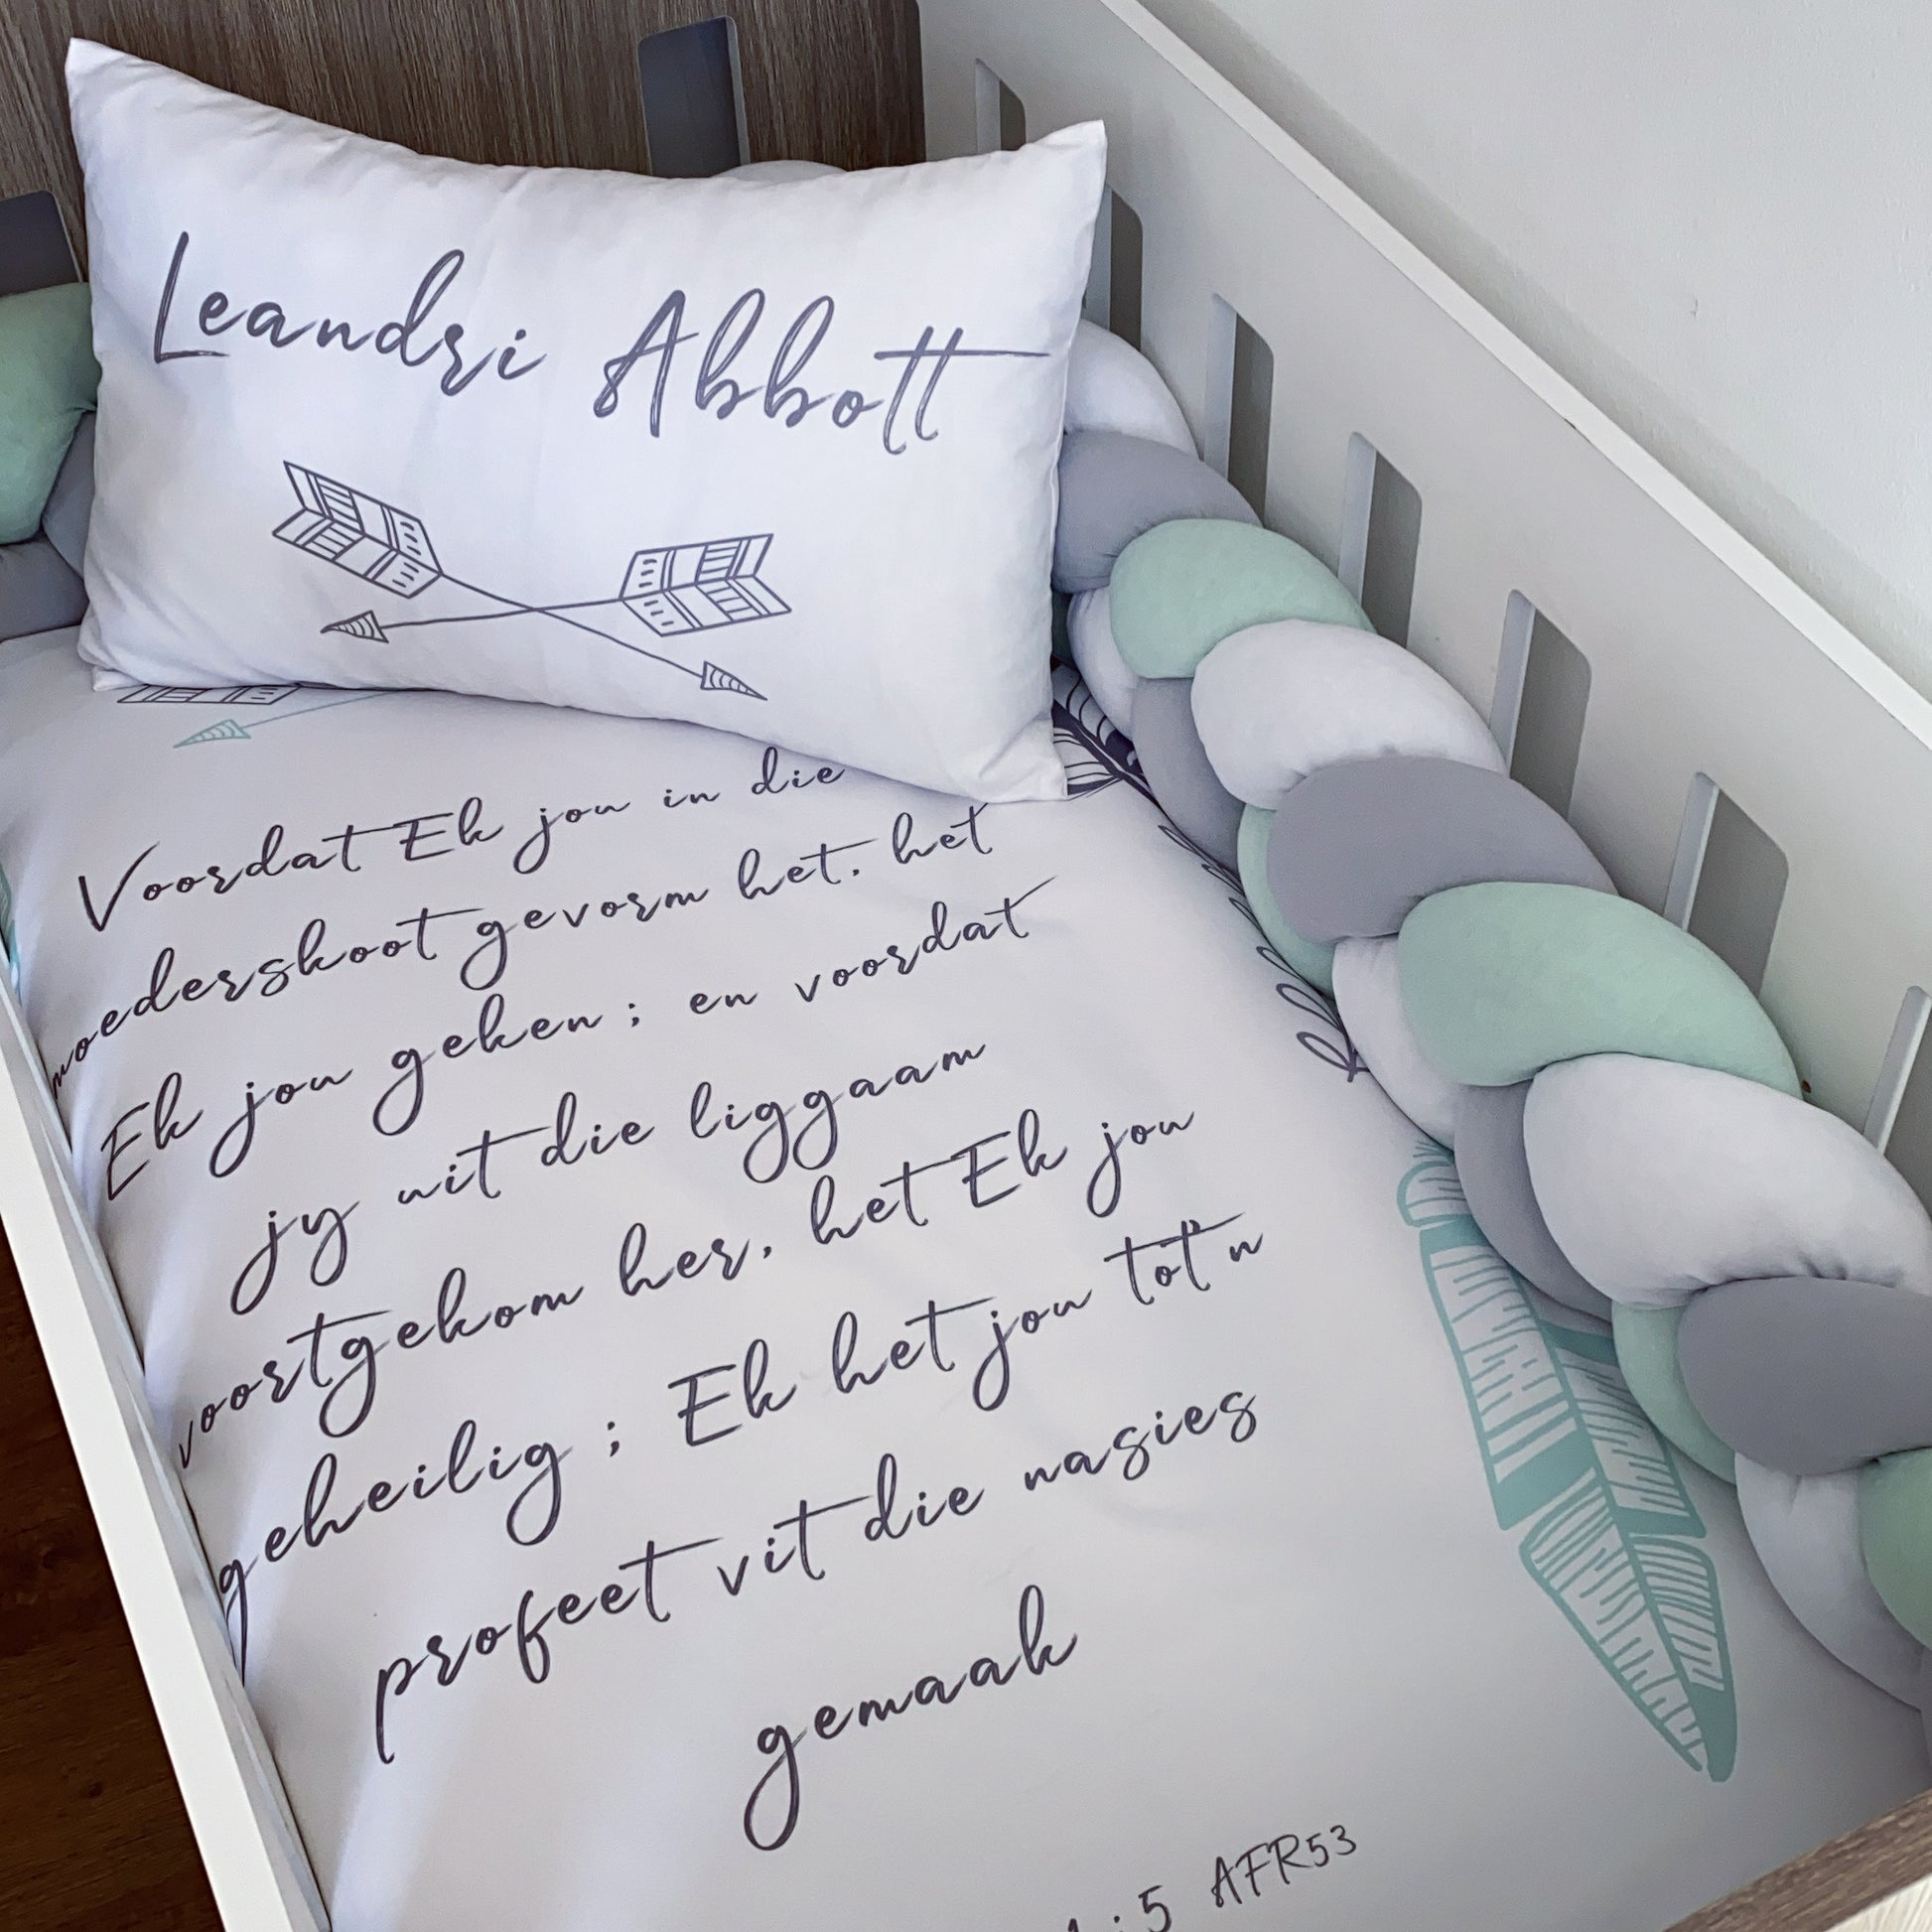 Leandri Abbott
Voordat Ek jou in die
moederskoot gevorm het, het
Ek jou geken; en voordat
jy uit die liggaam
voortgekom her, het Ek jou
geheilig; Ek het jou tot 'n
profeet vit die nasies
gemaak
:5 AFR53